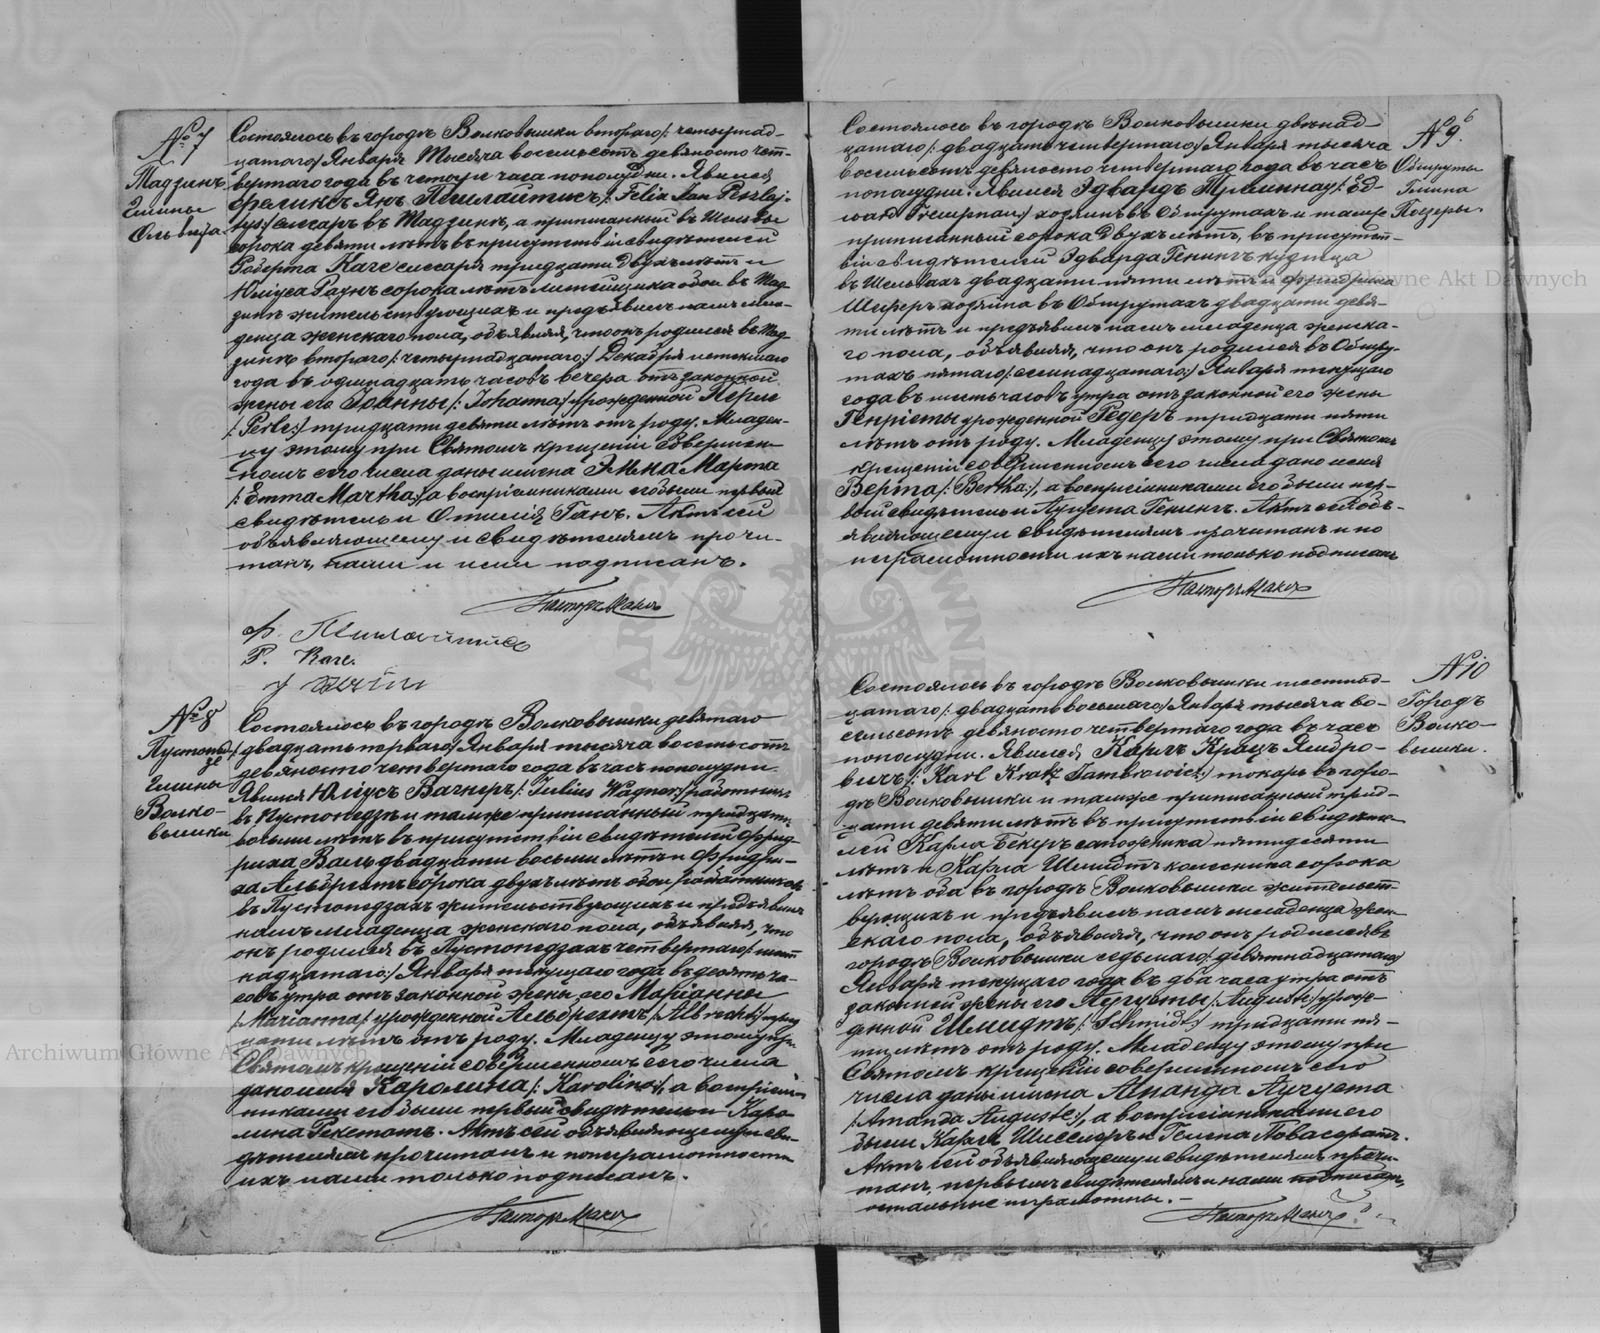 № 7
Тадзинъ
Гмины
Ольвита
Состоялось въ городѣ Волковышки втораго /: четырнад-
цатаго :/ Января тысяча восемьсотъ девяносто чет-
вертаго года въ четыре часа пополудни. Явился
Феликсъ Янъ /: Felix Jan
слесарь въ Тадзинѣ, а приписанный въ
сорока девяти лѣтъ въ присутствіи свидѣтелей
Роберта Каге слесаря тридцати двухъ лѣтъ и
Юліуса Гаунъ сорока лѣтъ литейщика обои въ Тад-
зинѣ жительствующихъ и предъявилъ намъ мла-
денца женскаго пола, объявляя, что онъ родился въ Тад-
зинѣ втораго /: четырнадцатаго :/ Декабря истекшаго
года въ одиннадцать часовъ вечера отъ законной
жены его Іоанны /: Johanna :/ урожденной Перле
/: Perle :/ тридцати девяти лѣтъ отъ роду. Младен-
цу этому при Святомъ крещеніи совершен-
номъ сего числа даны имена Эмма Марта
/: Emma Martha :/, а воспріемниками его были первый
свидѣтель и Отилія Ганъ. Актъ сей
объявляющему и свидѣтелямъ прочи-
танъ, нами и ими подписанъ.
Пасторъ
Ф.
Р. Каге.
№ 8
Пустопед-
зе
Гмины
Волко-
вышки
Состоялось въ городѣ Волковышки девятаго
/: двадцать перваго :/ Января тысяча восемьсотъ
девяносто четвертаго года въ часъ пополудни.
Явился Юліусъ Вагнеръ /: Julius Wagner :/ работникъ
въ Пустопедзѣ и тамже приписанный тридцати
восьми лѣтъ въ присутствіи свидѣтелей Фрид-
риха Валь двадцати восьми лѣтъ и Фридри-
ха Альбрехтъ сорока двухъ лѣтъ обои работниковъ
въ Пустопедзахъ жительствующихъ и предъявилъ
намъ младенца женскаго пола, объявляя, что
онъ родился въ Пустопедзахъ четвертаго /: шест-
надцатаго :/ Января текущаго года въ десять ча-
совъ утра отъ законной жены его Маріанны
/: Marianna :/ урожденной Альбрехтъ /: Albrecht :/ трид-
цати лѣтъ отъ роду. Младенцу этому при
Святомъ крещеніи совершенномъ сего числа
дано имя Каролина /: Karoline :/, а воспріем-
никами его были первый свидѣтель и Каро-
лина Рекстатъ. Актъ сей объявляющему и сви-
дѣтелямъ прочитанъ и по неграмотности
ихъ нами только подписанъ.
Пасторъ
6
№ 9.
Обшруты
Гмина
Поеверы.
Состоялось въ городѣ Волковышки двѣнад-
цатаго /: двадцать четвертаго :/ Января тысяча
восемьсотъ девяносто четвертаго года въ часъ
пополудни. Явился Эдвардъ /: Ed-
ward хозяинъ въ Обшрутахъ и тамже
приписанный сорока двухъ лѣтъ, въ присутст-
віи свидѣтелей Эдварда Генингъ кузнеца
въ Шельвахъ двадцати пяти лѣтъ и Фридриха
Шеферъ хозяина въ Обшрутахъ двадцати девя-
ти лѣтъ и предъявилъ намъ младенца женска-
го пола, объявляя, что онъ родился въ Обшру-
тахъ пятаго /: семнадцатаго :/ Января текущаго
года въ шесть часовъ утра отъ законной его жены
Генріеты урожденной Редеръ тридцати пяти
лѣтъ отъ роду. Младенцу этому при Святомъ
крещеніи совершенномъ сего числа дано имя
Берта /: Bertha :/, а воспріемниками его были пер-
вый свидѣтель и Аугуста Генингъ. Актъ сей объ-
являющему и свидѣтелямъ прочитанъ и по
неграмотности ихъ нами только подписанъ
Пасторъ
№ 10
Городъ
Волко-
вышки.
Состоялось въ городѣ Волковышки шестнад-
цатаго /: двадцать восьмаго :/ Января тысяча во-
семьсотъ девяносто четвертаго года въ часъ
пополудни. Явился Карлъ Крацъ Ямбро-
вичъ /: Karl Kratz Jambrowicz :/ токарь въ горо-
дѣ Волковышки и тамже приписанный трид-
цати девяти лѣтъ въ присутствіи свидѣте-
лей Карла Бекеръ сапожника пятидесяти
лѣтъ и Карла Шмидтъ колесника сорока
лѣтъ оба въ городѣ Волковышки жительст-
вующихъ и предъявилъ намъ младенца жен-
скаго пола, объявляя, что онъ родился въ
городѣ Волковышки седьмаго /: девятнадцатаго :/
Января текущаго года въ два часа утра отъ
законной жены его Аугусты /: Auguste :/ урож-
денной Шмидтъ /: Schmidt :/ тридцати пя-
ти лѣтъ отъ роду. Младенцу этому при
Святомъ крещеніи совершенномъ сего
числа даны имена Аманда Аугуста
/: Amanda Auguste :/, а воспріемниками его
были Карлъ и Гелена
Актъ сей объявляющему и свидѣтелямъ прочи-
танъ, первымъ свидѣтелемъ и нами подписанъ,
остальные неграмотны. -
Пасторъ
Archiwum Główne Akt Dawnych
Archiwum Główne Akt Dawnych